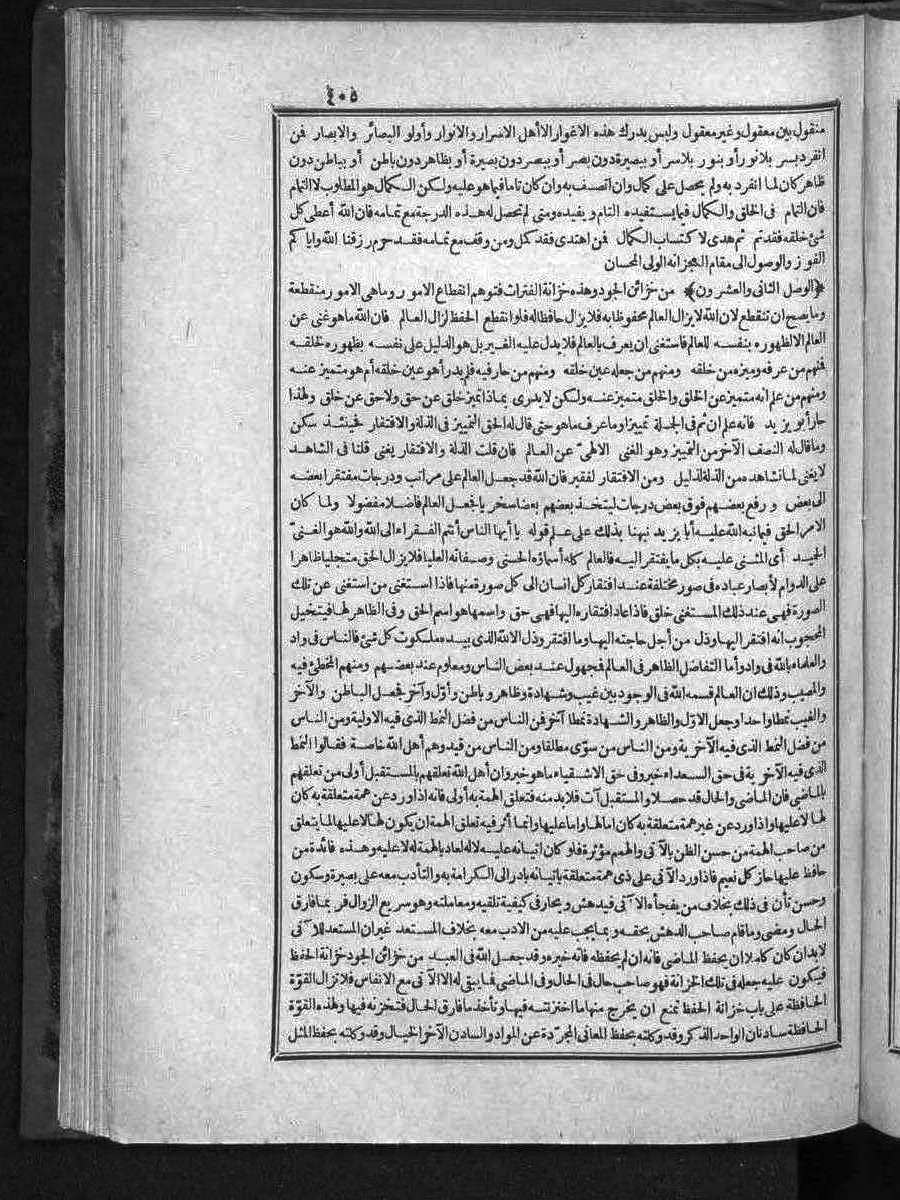 ٤٠٥
منقول بين معقول وغير معقول وليس يدرك هذه الاغوار الا أهل الاسرار والانوار وأولو البصائر والابصار فن
انفرد بسر بلا نور أو بنور بلا سر أو ببصيرة دون بصر أو ببصر دون بصيرة أو بظاهر دون باطن أو بباطن دون
ظاهر كان لما انفرد به ولم يحصل على كمال وان اتصف به وان كان تاما فيما هو عليه ولكن الكمال هو المطلوب لا التمام
فان التمام فى الخلق والكمال فيما يستفيده التام ويفيده ومتى لم تحصل له هذه الدرجة مع تمامه فان الله أعطى كل
شئ خلقه فقد تم ثم هدى لا كتساب الكمال فن اهتدى فقد كمل ومن وقف مع تمامه فقد حرم رزقنا الله واياكم
الفوز والوصول الى مقام العجز انه الولى المحسان
﴿الوصل الثانى والعشرون﴾ من خزائن الجود وهذه خزانة الفترات فتوهم انقطاع الامور وما هى الامور منقطعة
وما يصح ان تنقطع لان الله لا يزال العالم محفوظا به فلا يزال حافظا له فلو انقطع الحفظ لزال العالم فان الله ما هو غنى عن
العالم الا لظهوره بنفسه للعالم فاستغنى ان يعرف بالعالم فلا يدل عليه الغير بل هو الدليل على نفسه بظهوره لخلقه
فنهم من عرفه وميزه من خلقه ومنهم من جعله عين خلقه ومنهم من حار فيه فلم يدر أهو عين خلقه أم هو متميز عنه
ومنهم من علم انه متميز عن الخلق والخلق متميز عنه ولكن لا يدرى بماذا تميز خلق عن حق ولا حق عن خلق ولهذا
حار أبو يزيد فانه علم ان ثم فى الجملة تمييزا وما عرف ما هو حتى قال له الحق التمييز فى الذلة والافتقار فحينئذ سكن
وما قال له النصف الآخر من التمييز وهو الغنى الالهىّ عن العالم فان قلت الذلة والافتقار يغنى قلنا فى الشاهد
لا يغنى لما نشاهده من الذلة لذليل ومن الافتقار لفقير فان الله قد جعل العالم على مراتب ودرجات مفتقرا بعضه
الى بعض ورفع بعضهم فوق بعض درجات ليتخذ بعضهم بعضا سخريا فجعل العالم فاضلا مفضولا ولما كان
الامر الحق فيما نبه الله عليه أبا يزيد نبهنا بذلك على علم قوله يا أيها الناس أنتم الفقراء الى الله والله هو الغنىّ
الحميد أى المثنى عليه بكل ما يفتقر اليه فالعالم كله أسماؤه الحسنى وصفاته العليا فلا يزال الحق متجليا ظاهرا
على الدوام لأبصار عباده فى صور مختلفة عند افتقار كل انسان الى كل صورة منها فاذا استغنى من استغنى عن تلك
الصورة فهى عند ذلك المستغنى خلق فاذا عاد افتقاره اليها فهى حق واسمها هو اسم الحق وفى الظاهر لها فيتخيل
المحجوب انه افتقر اليها وذل من أجل حاجته اليها وما افتقر وذل الا لله الذى بيده ملكوت كل شئ فالناس فى واد
والعلماء بالله فى واد وأما التفاضل الظاهر فى العالم فجهول عند بعض الناس ومعلوم عند بعضهم ومنهم المخطئ فيه
والمصيب وذلك ان العالم قسمه الله فى الوجود بين غيب وشهادة وظاهر وباطن وأوّل وآخر فجعل الباطن والآخر
والغيب نمطا واحدا وجعل الاوّل والظاهر والشهادة نمطا آخر فن الناس من فضل النمط الذى فيه الاولية ومن الناس
من فضل النمط الذى فيه الآخرية ومن الناس من سوّى مطلقا ومن الناس من قيد وهم أهل الله خاصة فقالوا النمط
الذى فيه الآخرية فى حق السعداء خير وفى حق الاشقياء ما هو خير وان أهل الله تعلقهم بالمستقبل أولى من تعلقهم
بالماضى فان الماضى والحال قد حصلا والمستقبل آت فلا بد منه فتعلق الهمة به أولى فانه اذا ورد عن همة متعلقة به كان
لها لا عليها واذا ورد عن غير همة متعلقة به كان امّا لها واما عليها وانما أثر فيه تعلق الهمة ان يكون لها لا عليها لما يتعلق
من صاحب الهمة من حسن الظن بالآتى والهمم مؤثرة فلو كان اتيانه عليه لا له لعاد بالهمة له لا عليه وهذه فائدة من
حافظ عليها حاز كل نعيم فاذا ورد الآتى على ذى همة متعلقة باتيانه بادر الى الكرامة به والتأدب معه على بصيرة وسكون
وحسن تأن فى ذلك بخلاف من يفجأه الآتى فيدهش ويحار فى كيفية تلقيه ومعاملته وهو سريع الزوال فر بما فارق
الحال ومضى وما قام صاحب الدهش بحقه وبما يجب عليه من الادب معه بخلاف المستعد غير ان المستعد للآتى
لا بد ان كان كاملا ان يحفظ الماضى فانه ان لم يحفظه فاته خيره وقد جعل الله فى العبد من خزائن الجود خزانة الحفظ
فيكون عليه جعله فى تلك الخزانة فهو صاحب حال فى الحال وفى الماضى فما يبقى له الا الآتى مع الانفاس فلا تزال القوّة
الحافظة على باب خزانة الحفظ تمنع ان يخرج منها ما اختزنته فيها وتأخذ ما فارق الحال فتخزنه فيها ولهذه القوّة
الحافظة سادنان الواحد الذكر وقد وكلته بحفظ المعانى المجرّدة عن المواد والسادن الآخر الخيال وقد وكلته بحفظ المثل